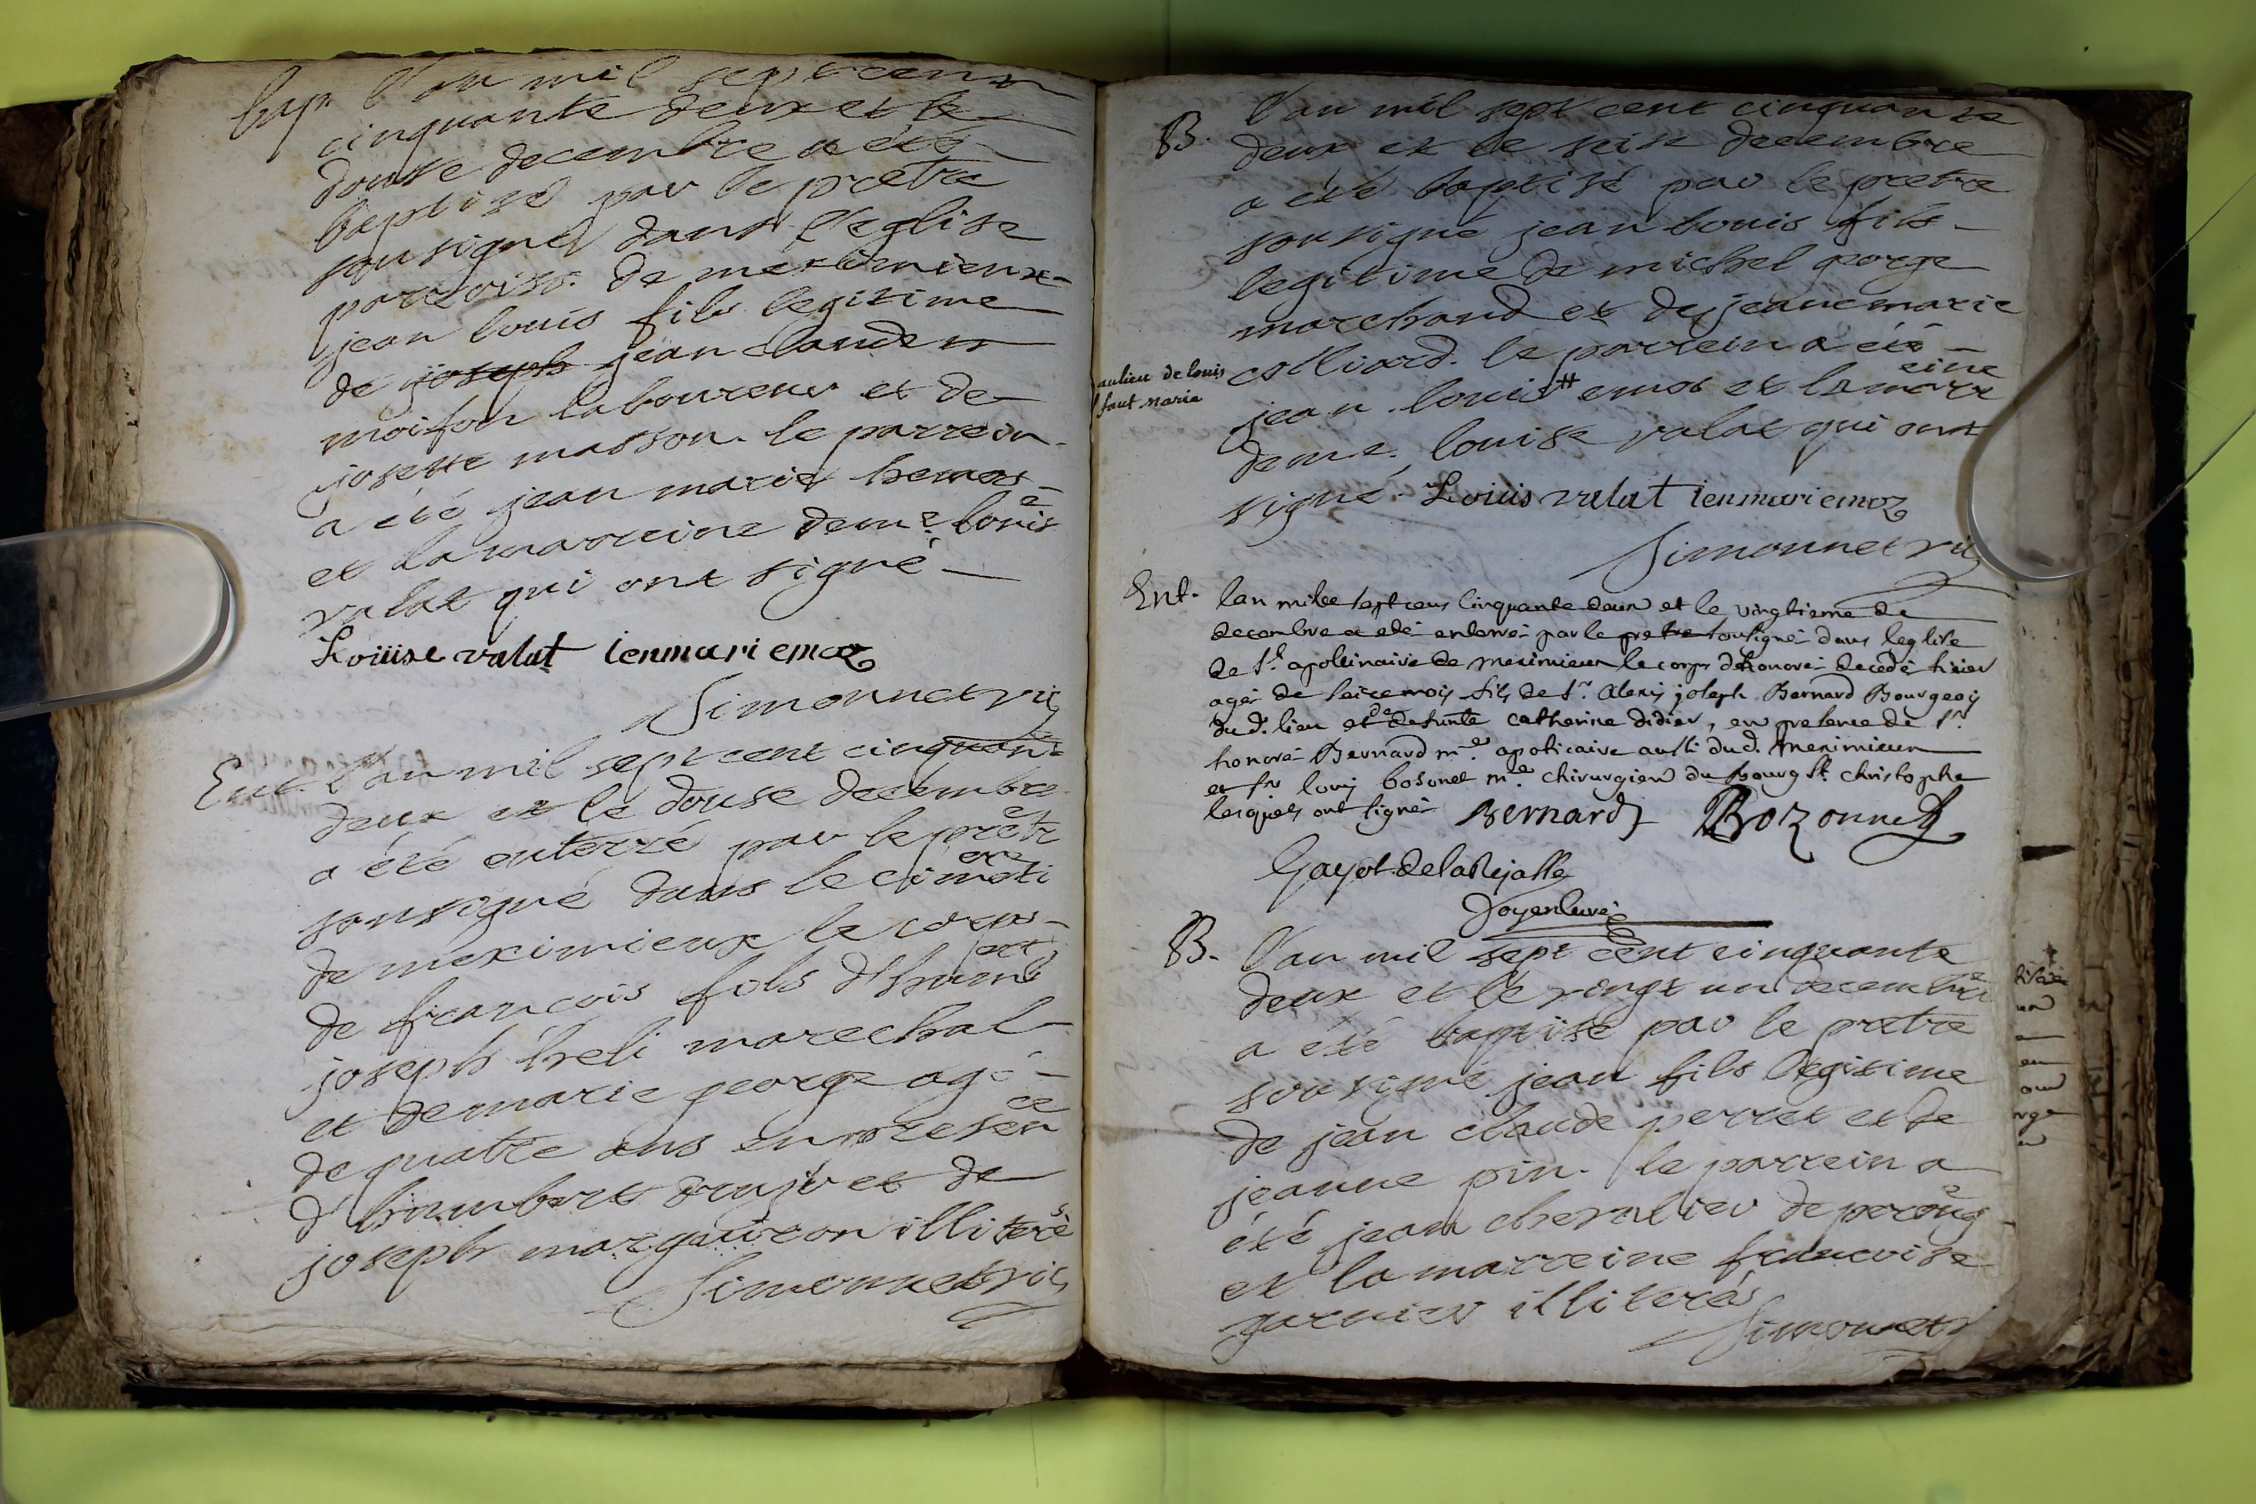 bap. l'an mil sept cens
cinquante deux et le
douse decembre a été
baptisé par le prêtre
sousigné dans l'eglise
parroiss. de meximieux
jean louis fils legitime
de joseph jean claude
moifon laboureur et de
josette masson. le parrein
a été jean marie hemos
et la marreine dem.e louise
valat qui ont signé
Loüise valat ienmari emoz
Simonnet vic
Ent. l'an mil sept cent cinquante
deux et le douse decembre
a été enterré par le prêtre
sousigné dans le cimetiere
de meximieux le corps
de francois fils d'humbert
joseph heli marechal
et de marie george agé
de quatre ans en presence
d'humbert et de
joseph marguiron illiterés
Simonnet vic
B. l'an mil sept cent cinquante
deux et le seise decembre
a été baptisé par le prêtre
sousigné jean louis fils
legitime de michel george
marchand et de jeane marie
colliard. le parrein a été
aulieu de louis
faut maria
jean louis # emos et la marreine
deme. louise valat qui ont
signé. Loüis valat ienmari emoz
Simonnet vic
Ent. lan mille sept cens Cinquante deux et le vingtieme de
decembre a eté enterré par le pretre sousigné dans leglise
de St. apollinaire de meximieux le corps d'honoré decedé hier
agé de seize mois fils de Sr. alexis joseph Bernard Bourgeois
du d. lieu et de defunte catherine didier, en presence de Sr.
honoré Bernard me. apoticaire aussi du d. meximieux
et Sr louis bosonet me. chirurgien du bourg St. christophe
lesquels ont signé Bernard Bozonnet
Gayot de la Rejasse
Doyen curé
B. l'an mil sept cent cinquante
deux et le vingt un decembre
a été baptisé par le prêtre
sousigné jean fils legitime
de jean claude perret et de
jeanne pin. le parrein a
été jean chevalier de peroüges
et la marreine francoise
garnier illiterés
Simonnet